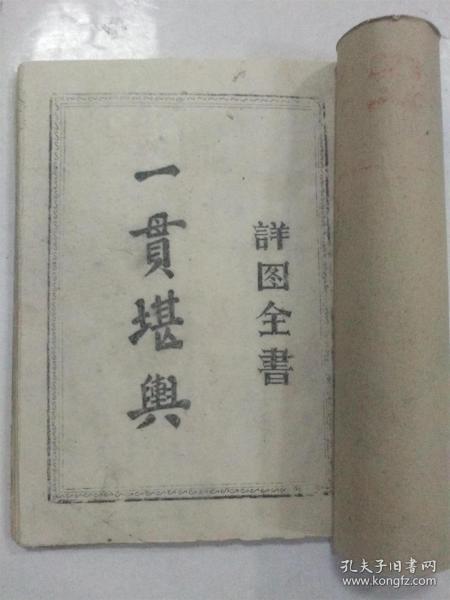 詳图全書
一貫堪輿
孔夫子旧书网
www.kongfz.com